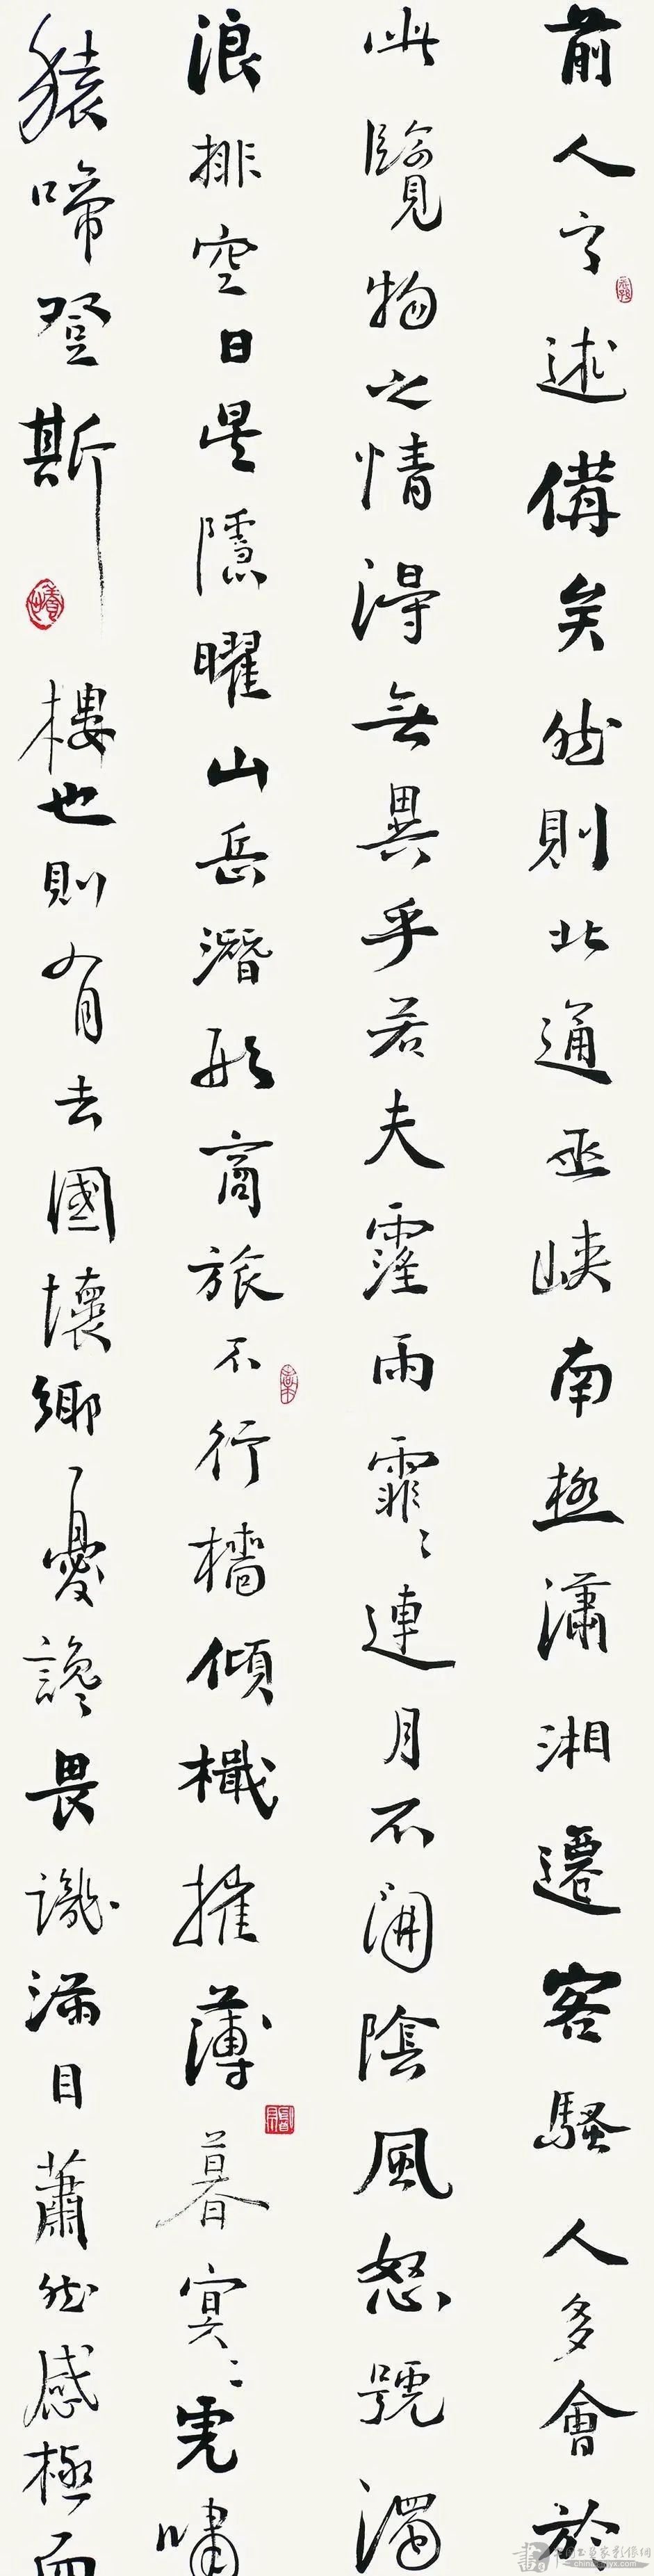 前人之述備矣然則北通巫峽南極瀟湘遷客騷人多會於
此覽物之情得無異乎若夫霪雨霏〻連月不開陰風怒號濁
浪排空日星隱曜山岳潛形商旅不行檣傾檝摧薄暮冥〻虎嘯
猿啼登斯樓也則有去國懷鄉憂讒畏譏滿目蕭然感極而